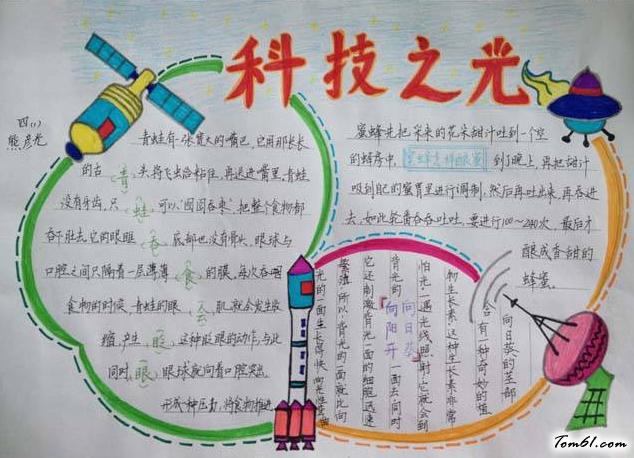 科技之光
四(1)
熊彦光
青蛙有一张宽大的嘴巴,它用那长长
的舌头将飞虫给粘住,再送进嘴里,青蛙
没有牙齿,只可以“囫囵吞枣”,把整个食物都
吞下肚去,它的眼眶底部也没有骨头,眼球与
口腔之间只隔着一层薄薄的膜,每次吞咽
食物的时候,青蛙的眼肌就会发生收
缩,产生眨眼的动作,与此
同时,眼球就向着口腔突出,
形成一种压力,将食物推进
青蛙吞食会眨眼
蜜蜂先把采来的花朵甜汁吐到一个空
的蜂房中,到了晚上,再把甜汁
吸到自己的蜜胃里进行调制,然后再吐出来,再吞进
去,如此轮番吞吞吐吐,要进行100~240次,最后才
酿成香甜的
蜂蜜。
蜜蜂怎样酿蜜
向日葵的茎部
含有一种奇妙的植
物生长素,这种生长素非常
怕光,一遇光线照射,它就会到
背光的一面去,同时
它还刺激背光一面的细胞迅速
繁殖,所以,背光的一面就比向
光的一面生长得快
向日葵
向阳开
Tom61.com